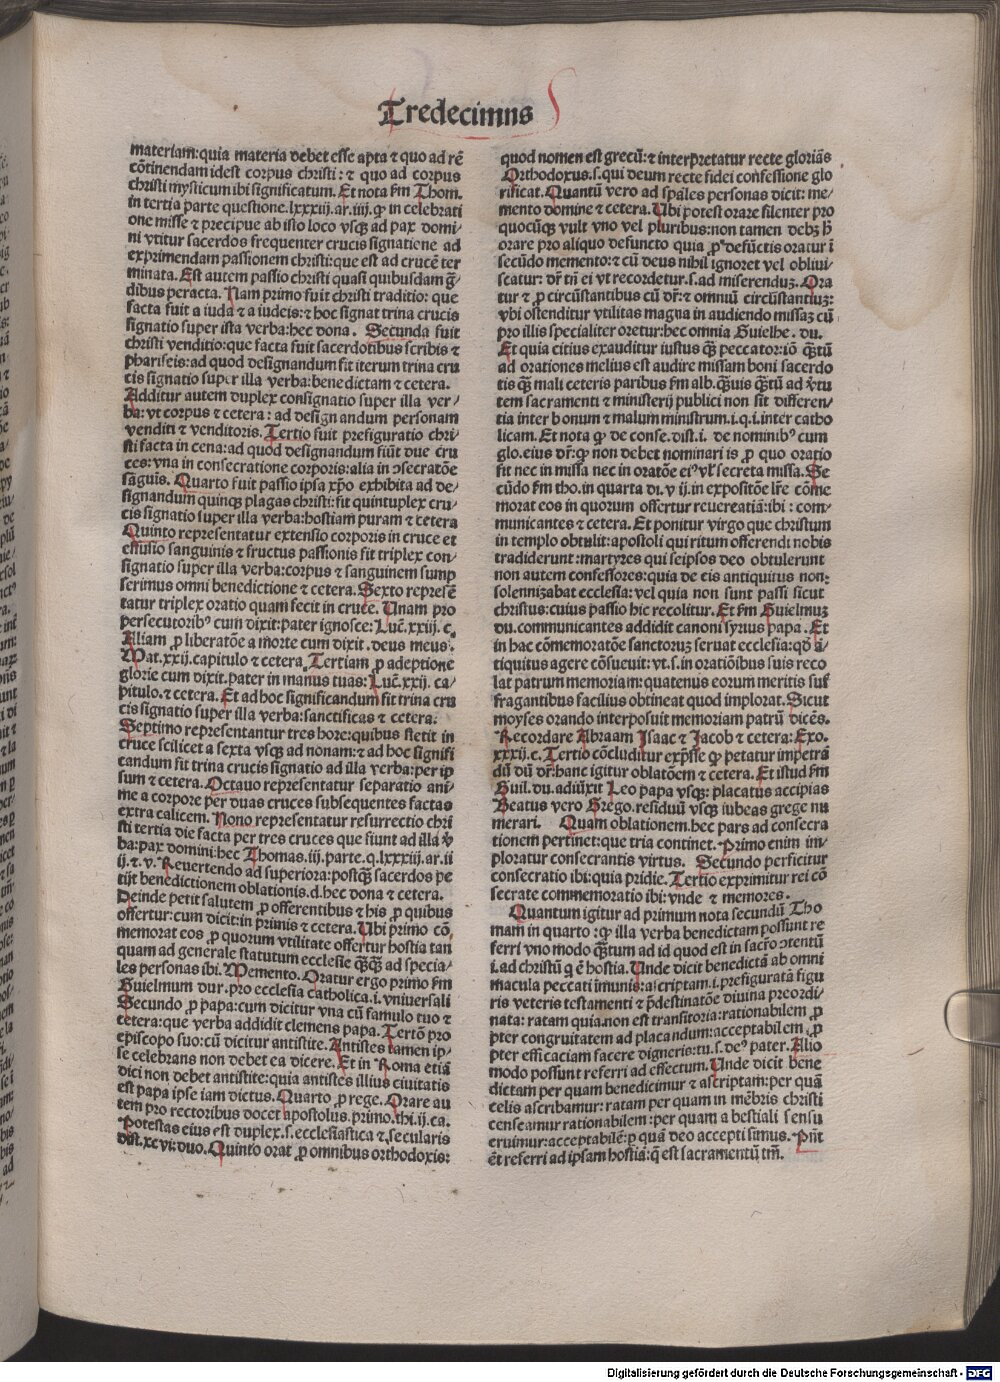 Tredecimus
materiam:quia materia debet esse apta ⁊ quo ad rē
cōtinendam idest corpus christi: ⁊ quo ad corpus
christi mysticum ibi significatum. Et nota s̄m Thom.
in tertia parte questione.lxxxiij.ar.iiij.ꝙ in celebrati
one misse ⁊ precipue ab isto loco vsqꝫ ad pax domi⸗
ni vtitur sacerdos frequenter crucis signatione ad
exprimendam passionem christi:que est ad crucē ter
minata. Est autem passio christi quasi quibusdam g̃
dibus peracta. Nam primo fuit christi traditio: que
facta fuit a iuda ⁊ a iudeis:⁊ hoc signat trina crucis
signatio super ista verba:hec dona. Secunda fuit
christi venditio:que facta fuit sacerdotibus scribis ⁊
phariseis:ad quod designandum fit iterum trina cru
cis signatio super illa verba:benedictam ⁊ cetera.
Additur autem duplex consignatio super illa ver⸗
ba: vt corpus ⁊ cetera: ad designandum personam
venditi ⁊ venditoris. Tertio fuit prefiguratio chri⸗
sti facta in cena:ad quod designandum fiūt due cru
ces: vna in consecratione corporis:alia in ɔsecratōe
sāguis. Quarto fuit passio ipsa xp̄o exhibita ad de⸗
signandum quinqꝫ plagas christi:fit quintuplex cru⸗
cis signatio super illa verba:hostiam puram ⁊ cetera
Quinto representatur extensio corporis in cruce et
effusio sanguinis ⁊ fructus passionis fit triplex con⸗
signatio super illa verba:corpus ⁊ sanguinem sump
serimus omni benedictione ⁊ cetera. Sexto represē
tatur triplex oratio quam fecit in cruce. Unam pro
persecutoribꝰ cum dixit:pater ignosce: Luc̄.xxiij. c.
Aliam ꝓ liberatōe a morte cum dixit. deus meus.
Mat.xxij.capitulo ⁊ cetera. Tertiam ꝓ adeptione
glorie cum dixit.pater in manus tuas: Luc̄.xxij. ca⸗
pitulo.⁊ cetera. Et ad hoc significandum fit trina cru
cis signatio super illa verba:sanctificas ⁊ cetera:
Septimo representantur tres hore:quibus stetit in
cruce scilicet a sexta vsqꝫ ad nonam:⁊ ad hoc signifi
candum fit trina crucis signatio ad illa verba:per ip
sum ⁊ cetera. Octauo representatur separatio ani⸗
me a corpore per duas cruces subsequentes factas
extra calicem. Nono representatur resurrectio chri
sti tertia die facta per tres cruces que fiunt ad illa v̄
ba:pax domini:hec Thomas.iij.parte.q.lxxxiij.ar.ii
ij.⁊.v. Reuertendo ad superiora:postqꝫ̄ sacerdos pe
tijt benedictionem oblationis.d.hec dona ⁊ cetera.
Deinde petit salutem ꝓ offerentibus ⁊ his ꝓ quibus
offertur:cum dicit:in primis ⁊ cetera. Ubi primo cō⸗
memorat eos ꝓ quorum vtilitate offertur hostia tan
quam ad generale statutum ecclesie qꝫ̄qꝫ̄ ad specia⸗
les personas ibi. Memento. Oratur ergo primo s̄m
Guielmum dur.pro ecclesia catholica.i.vniuersali
Secundo ꝓ papa:cum dicitur vna cū famulo tuo ⁊
cetera:que verba addidit clemens papa. Tertō pro
episcopo suo:cū dicitur antistite. Antistes tamen ip⸗
se celebrans non debet ea dicere. Et in Roma etiā
dici non debet antistite:quia antistes illius ciuitatis
est papa ipse iam dictus. Quarto ꝓ rege. Orare au
tem pro rectoribus docet apostolus.primo.thi.ij.ca.
Potestas eius est duplex.s.ecclesiastica ⁊.secularis
dist.xcvi:duo. Quinto orat ꝓ omnibus orthodoxis:
quod nomen est grecū:⁊ interpretatur recte gloriās
Orthodoxus.s.qui deum recte fidei confessione glo
rificat. Quantū vero ad sp̄ales personas dicit: me⸗
mento domine ⁊ cetera. Ubi potest orare silenter pro
quocūqꝫ vult vno vel pluribus:non tamen debꝫ h̄
orare pro aliquo defuncto quia ꝓ defūctis oratur ī
secūdo memento:⁊ cū deus nihil ignoret vel obliui⸗
scatur: dr̄ tn̄ ei vt recordetur.s.ad miserenduꝫ. Ora
tur ⁊ ꝓ circūstantibus cū dr̄:⁊ omniū circūstantiuꝫ:
vbi ostenditur vtilitas magna in audiendo missaꝫ cū
pro illis specialiter oretur:hec omnia Guielhe. du.
Et quia citius exauditur iustus qꝫ̄ peccator:iō qꝫ̄tū
ad orationes melius est audire missam boni sacerdo
tis qꝫ̄ mali ceteris paribus s̄m alb.qꝫ̄uis qꝫ̄tū ad v̄tu
tem sacramenti ⁊ ministerij publici non sit differen⸗
tia inter bonum ⁊ malum ministrum.i.q.i.inter catho
licam. Et nota ꝙ de conse.dist.i. de nominibꝰ cum
glo.eius dr̄:ꝙ non debet nominari is ꝓ quo oratio
fit nec in missa nec in oratōe eiꝰ vl̓ secreta missa. Se
cūdo s̄m tho.in quarta di. v ij.in expositōe lr̄e cōme
morat eos in quorum offertur reuerentiā:ibi: com⸗
municantes ⁊ cetera. Et ponitur virgo que christum
in templo obtulit:apostoli qui ritum offerendi nobis
tradiderunt:martyres qui seipsos deo obtulerunt
non autem confessores:quia de eis antiquitus non⸗
solennizabat ecclesia: vel quia non sunt passi sicut
christus:cuius passio hic recolitur. Et s̄m Guielmuꝫ
du.communicantes addidit canoni syrius papa. Et
in hac cōmemoratōe sanctoruꝫ seruat ecclesia: qd̄ a⸗
tiquitus agere cōsueuit: vt.s.in oratiōibus suis reco
lat patrum memoriam:quatenus eorum meritis suf
fragantibus facilius obtineat quod implorat. Sicut
moyses orando interposuit memoriam patrū dicēs.
Recordare Abraam Isaac ⁊ Jacob ⁊ cetera: Exo.
xxxij.c. Tertio cōcluditur exp̄sse ꝙ petatur impetrā
dū dū dr̄:hanc igitur oblatōem ⁊ cetera. Et istud s̄m
Guil.du.adiūxit Leo papa vsqꝫ: placatus accipias
Beatus vero Grego.residuū vsqꝫ iubeas grege nu
merari. Quam oblationem.hec pars ad consecra
tionem pertinet:que tria continet. Primo enim im⸗
ploratur consecrantis virtus. Secundo perficitur
consecratio ibi:quia pridie. Tertio exprimitur rei cō
secrate commemoratio ibi:vnde ⁊ memores.
Quantum igitur ad primum nota secundū Tho
mam in quarto:ꝙ illa verba benedictam possunt re
ferri vno modo qꝫ̄tum ad id quod est in sacr̄o ɔtentū
i.ad christū q̄ ē hostia. Unde dicit benedictā ab omni
macula peccati īmunis:ascriptam.i.prefiguratā figu
ris veteris testamenti ⁊ p̄destinatōe diuina preordi⸗
nata: ratam quia.non est transitoria:rationabilem ꝓ
pter congruitatem ad placandum:acceptabilem ꝓ
pter efficaciam facere digneris:tu.s.deꝰ pater. Alio
modo possunt referri ad effectum. Unde dicit bene
dictam per quam benedicimur ⁊ ascriptam:per quā
celis ascribamur: ratam per quam in mēbris christi
censeamur rationabilem:per quam a bestiali sensu
eruimur:acceptabilē:ꝑ quā deo accepti simus. Pn̄t
ēt referri ad ipsam hostiā:q̄ est sacramentū tm̄.
Digitalisierung gefördert durch die Deutsche Forschungsgemeinschaft - DFG